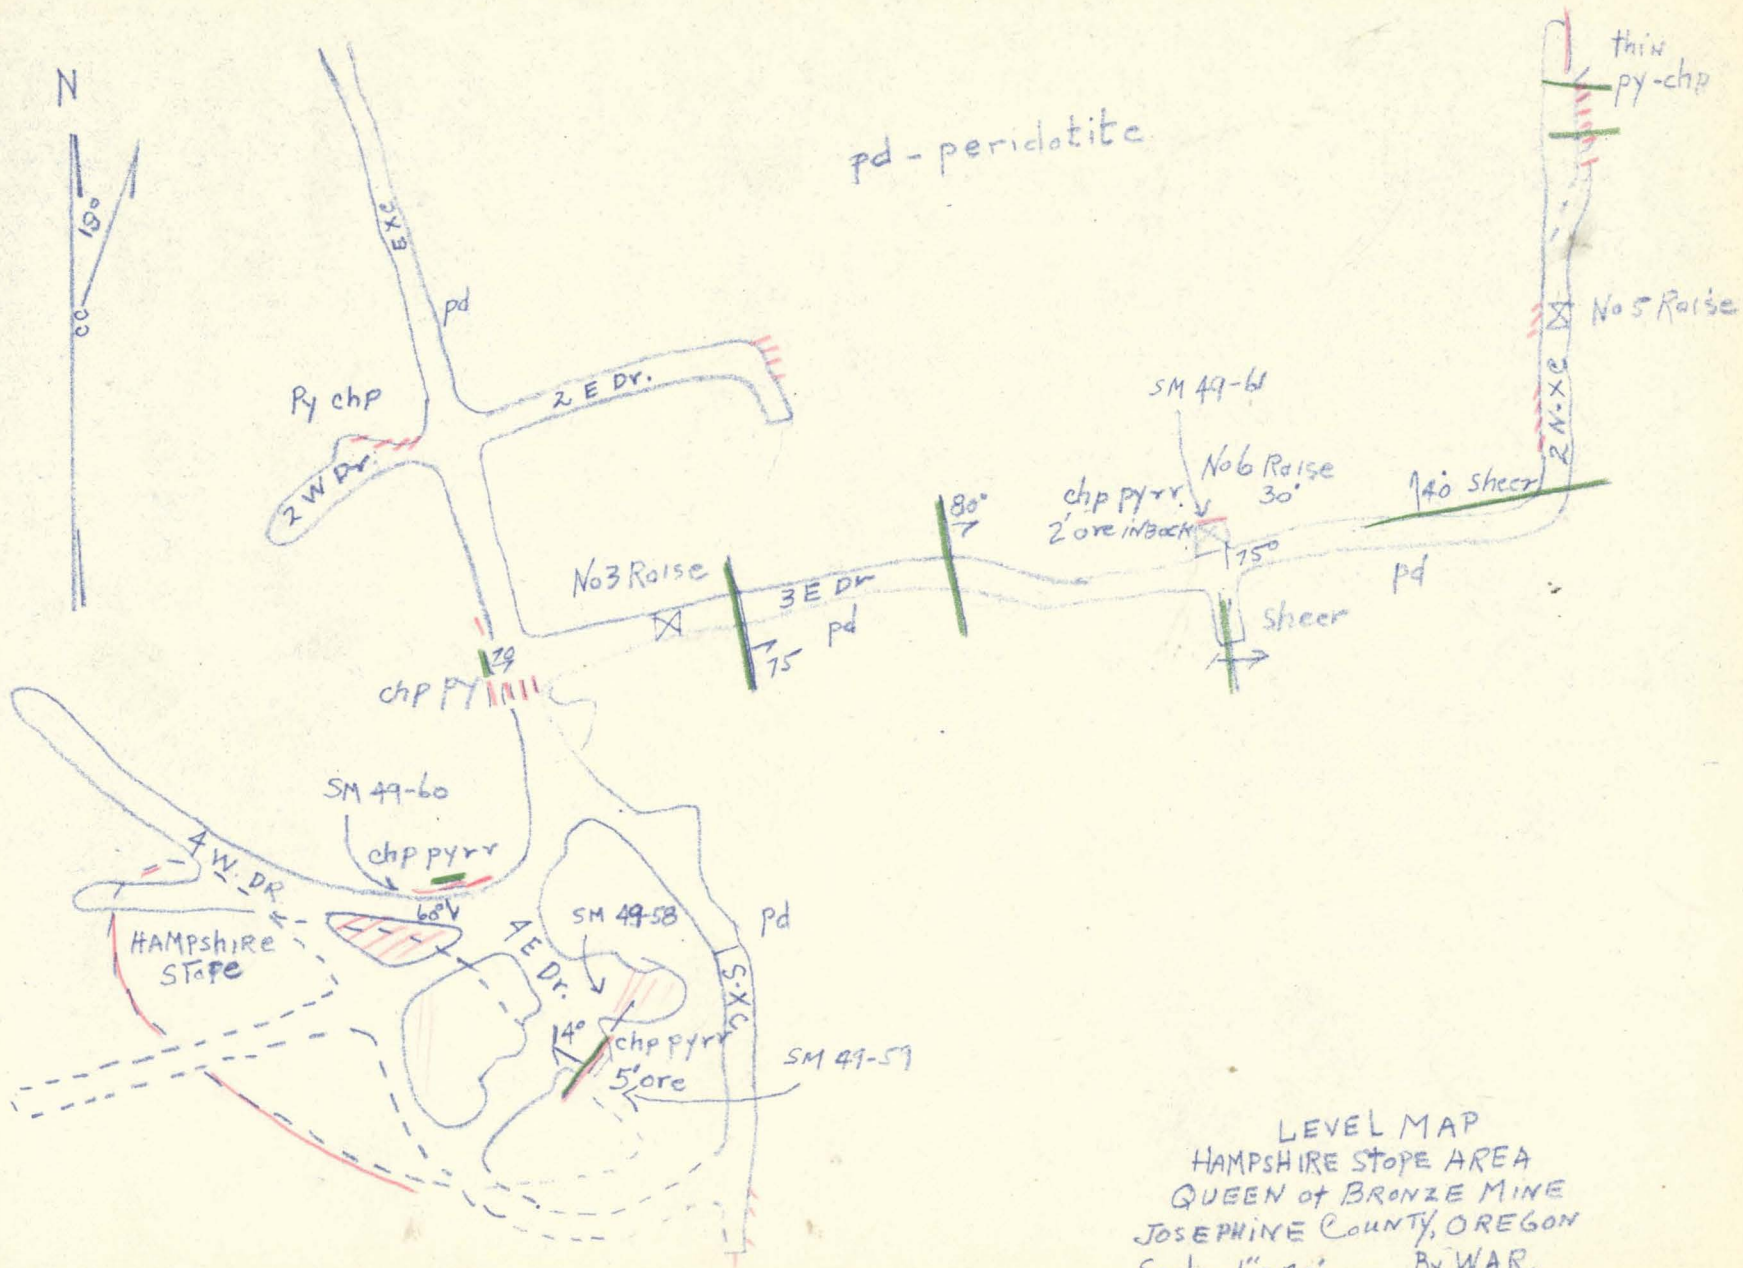 N
18°
CC
E XC
pd
pd - peridotite
thin
py-chp
No 5 Raise
2 N·XC
Py chp
2 W Dr.
2 E Dr.
SM 49-61
No 6 Raise
30'
chp pyrr.
2' ore in Back
75°
40 sheer
pd
80°
No 3 Raise
3 E Dr
pd
75
sheer
79
chp py
SM 49-60
chp pyrr
60°
4 W. DR.
HAMPSHIRE
STOPE
4 E Dr.
SM 49-58
pd
S·XC
14°
chp pyrr
5' ore
SM 49-59
LEVEL MAP
HAMPSHIRE STOPE AREA
QUEEN of BRONZE MINE
JOSEPHINE COUNTY, OREGON
By WAR.